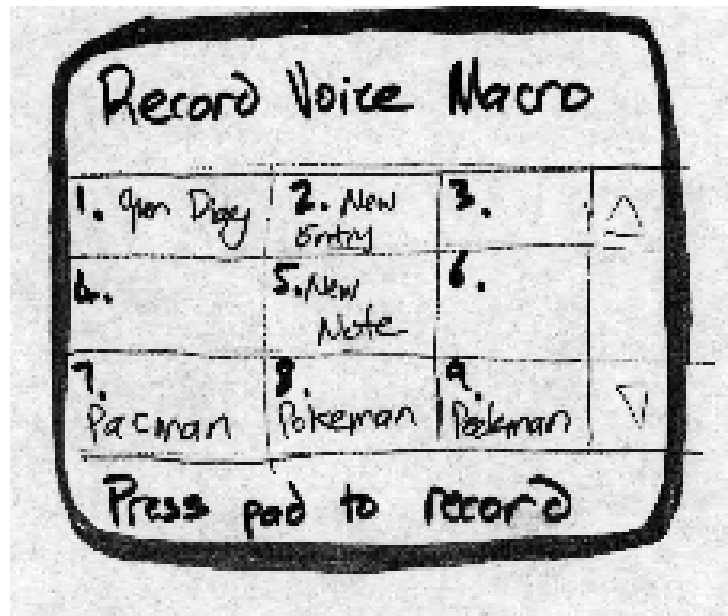 Record Voice Macro
1. Open Diary
2. New
Entry
3.
4.
5. New
Note
6.
7.
Pacman
8.
Pokeman
9.
Peekman
Press pad to record